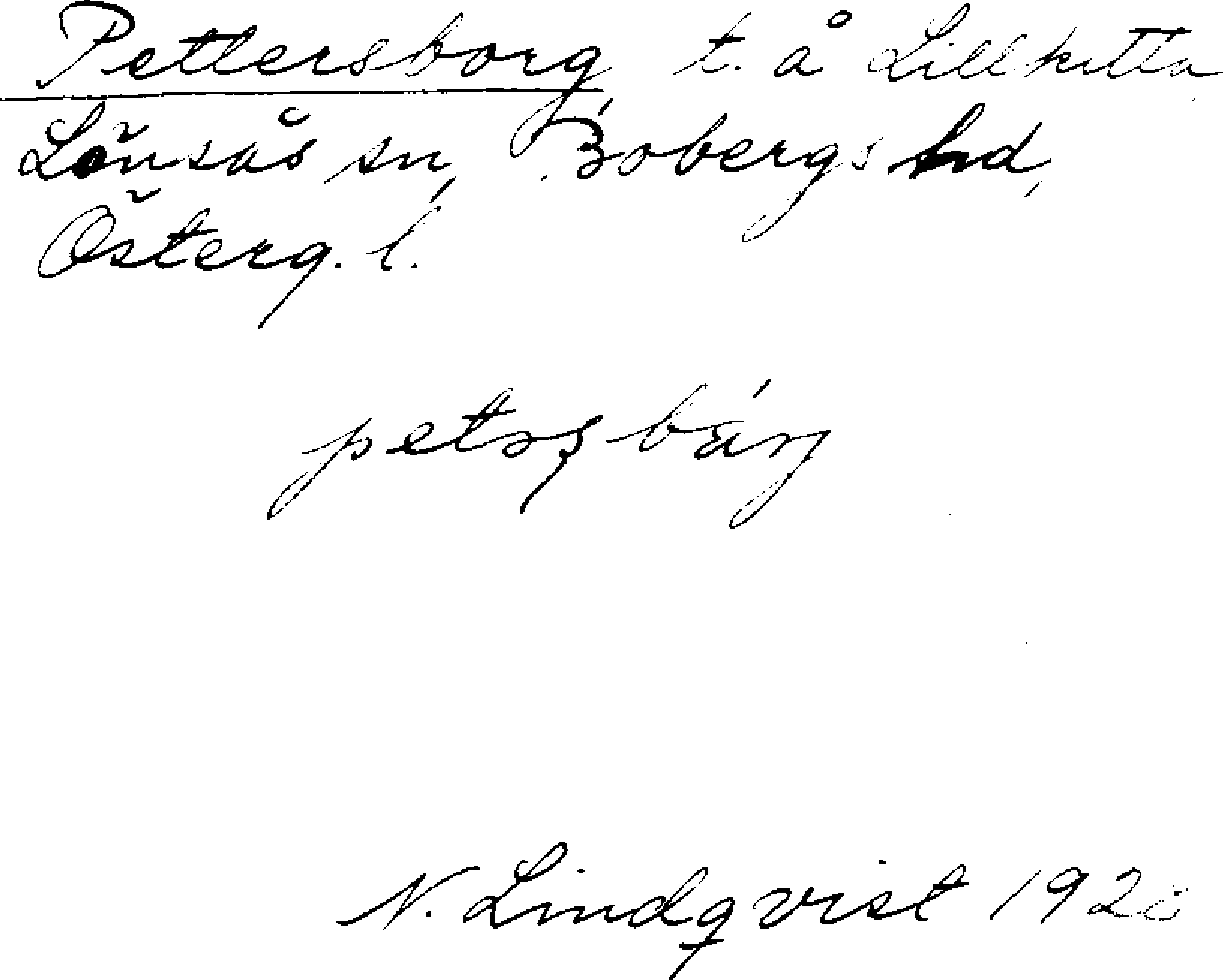 Pettersborg t. å Lillkulla
Lönsås sn, Bobergs hd,
Österg. l.
N. Lindqvist